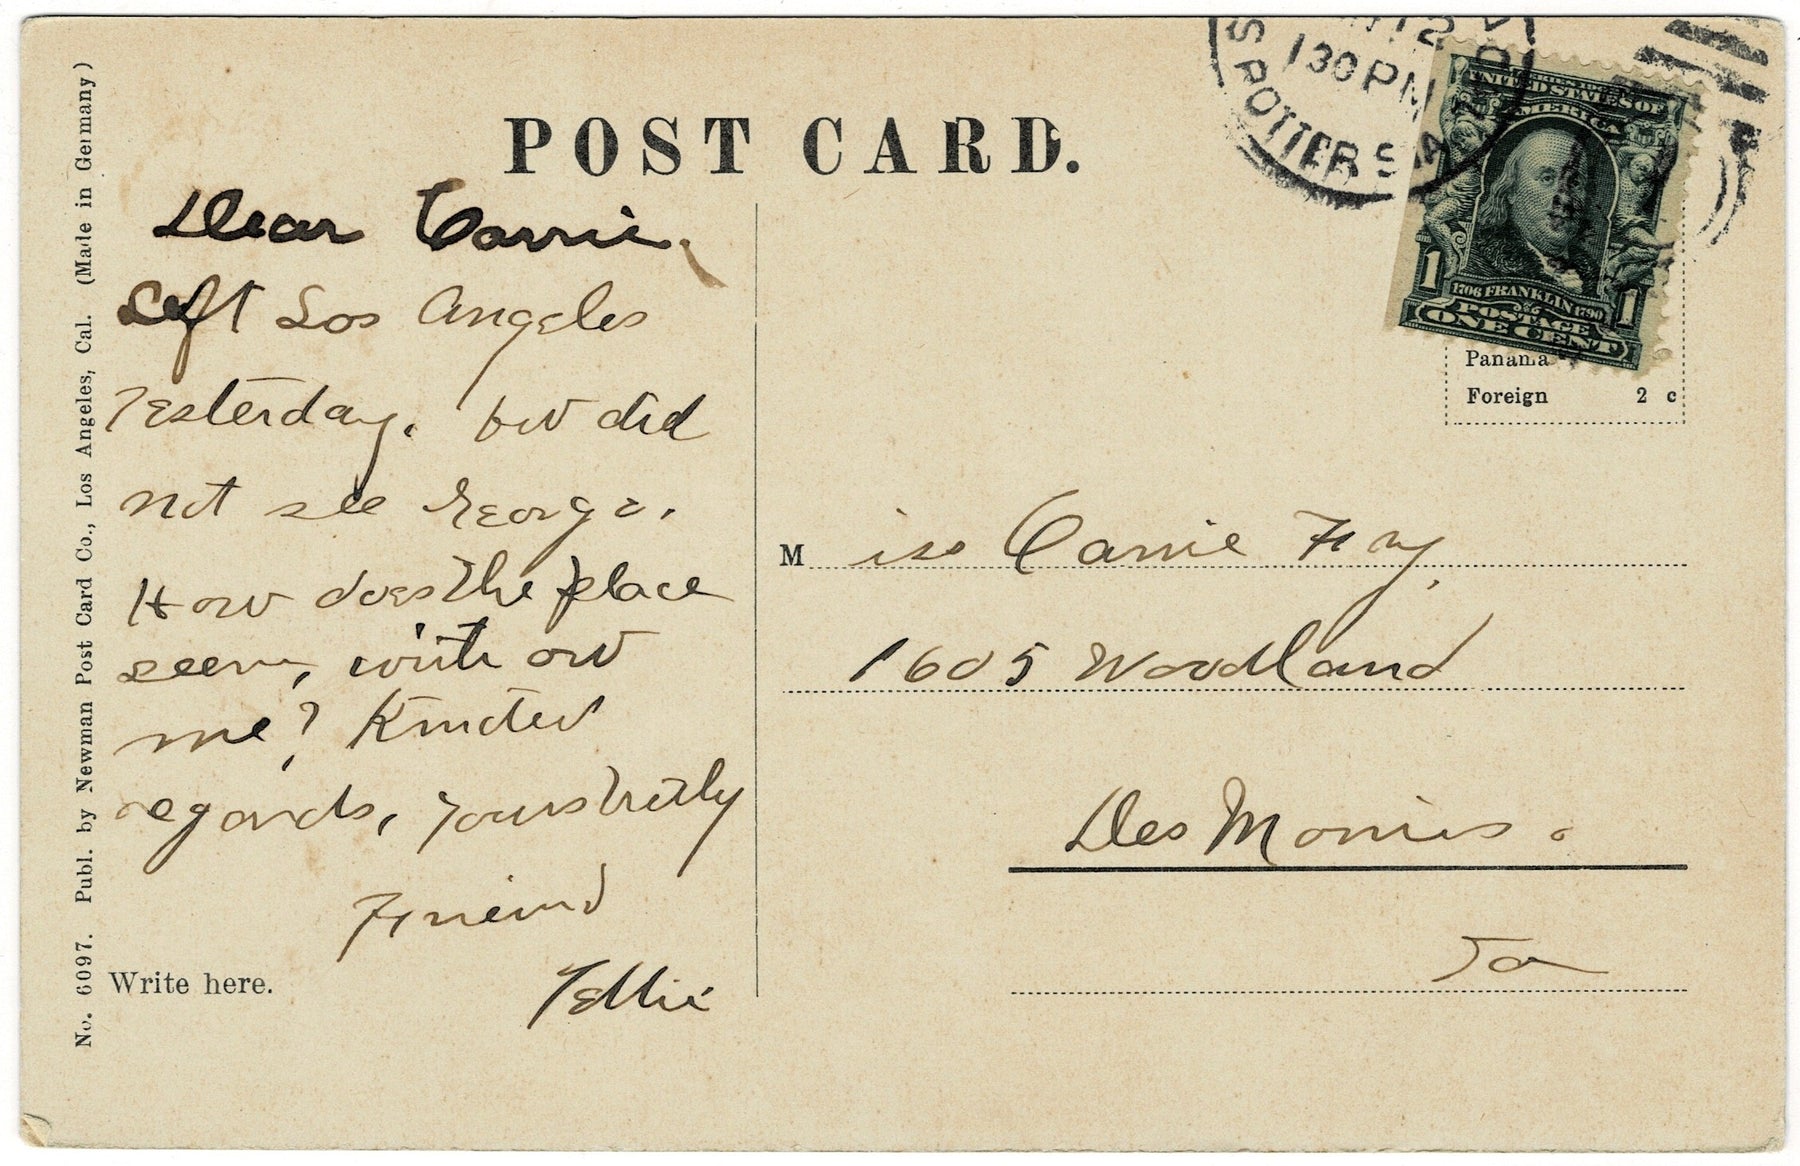 POST CARD.
No. 6097. Publ. by Newman Post Card Co., Los Angeles, Cal. (Made in Germany)
Dear Carrie,
Left Los Angeles
Yesterday. but did
not see George.
How does the place
seem, with out
me? Kindest
regards, Yours truly
Friend
Tellie
Write here.
12
130 PM
UNITED STATES OF
AMERICA
1 1
1706 FRANKLIN 1790
POSTAGE
ONE CENT
Panama
Foreign 2 c
Miss Carrie Fry,
1605 Woodland
Des Moines.
Ia